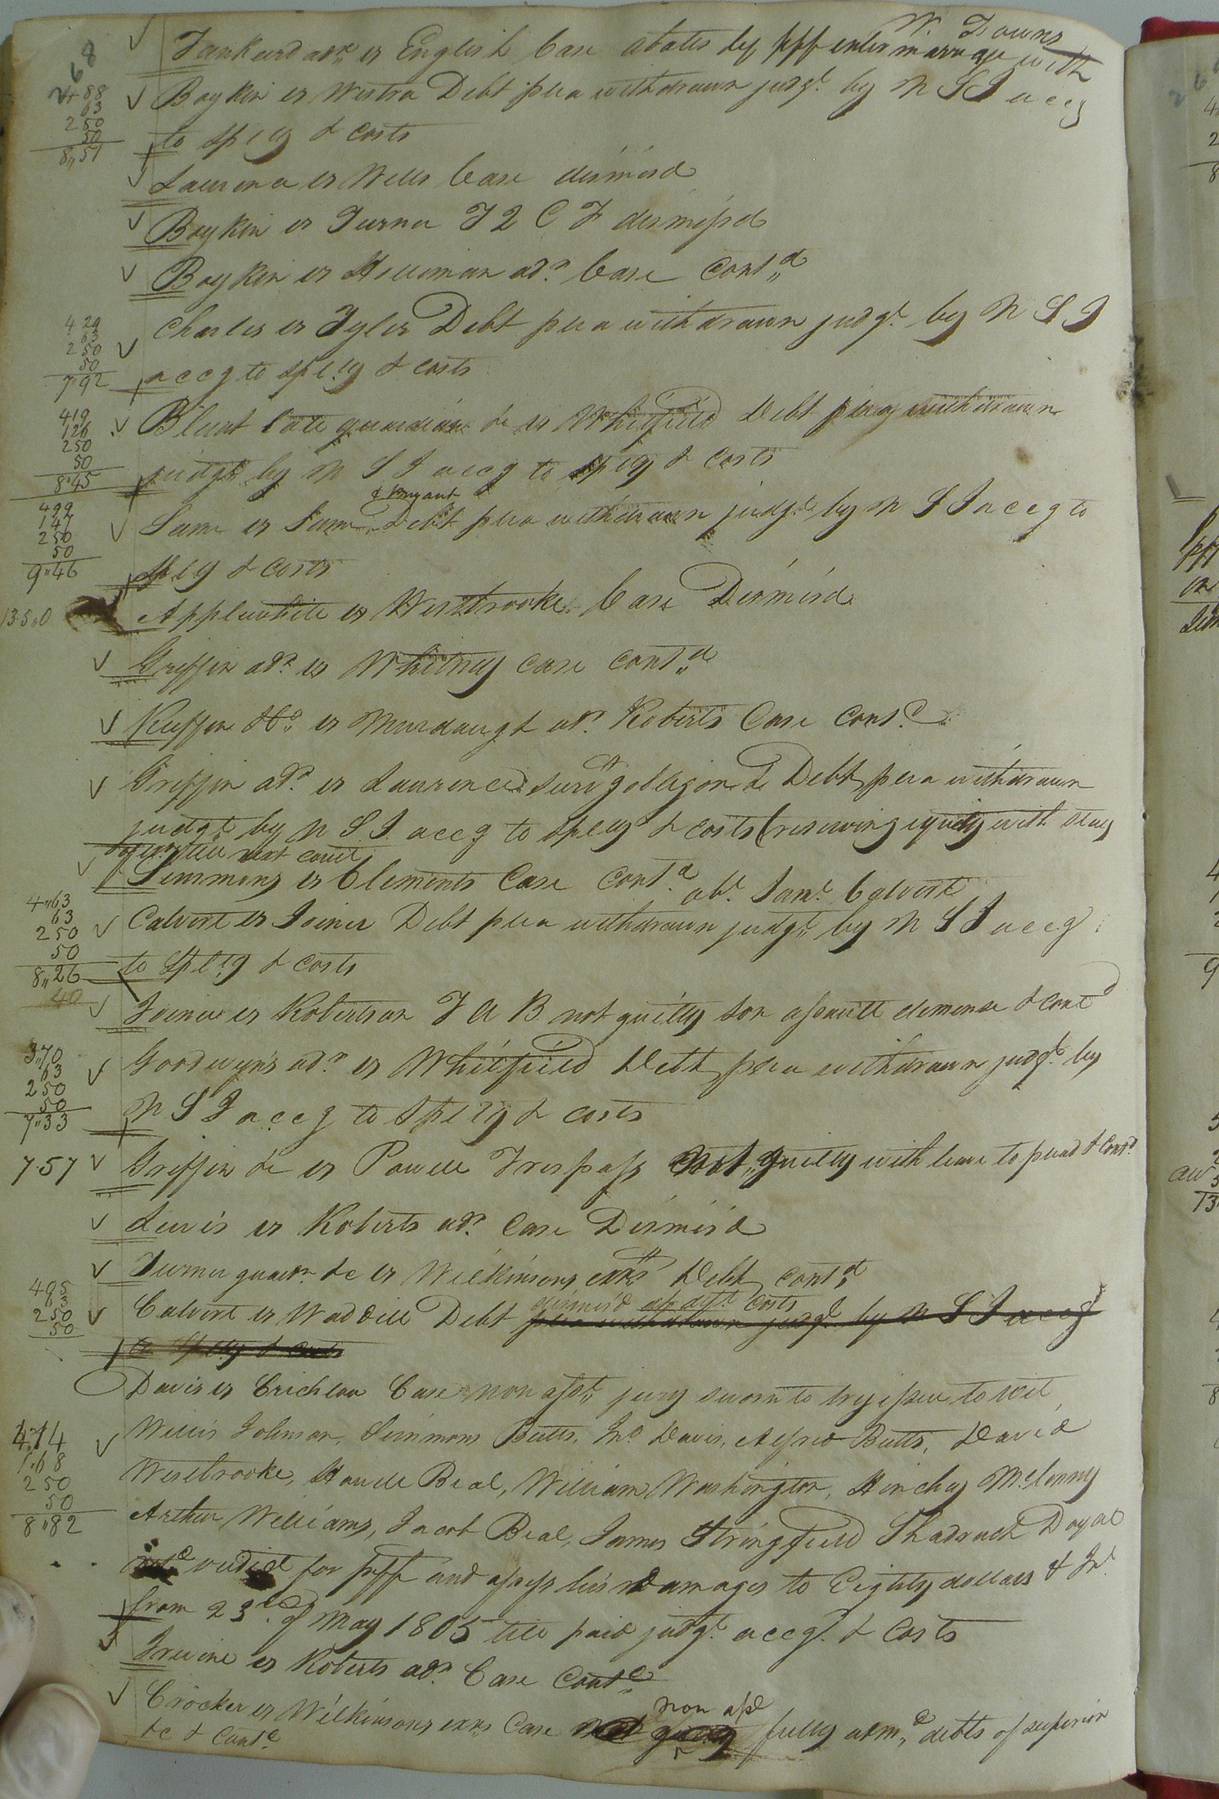 68
W. Towns
Tankard adr. vs English Case abates by plff intermarriage with
88
63
250
50
8,,51
Boykin vs Westra Debt plea withdrawn judgt. by N S I accg
to specy & costs
Laurence vs Wells Case dismisd
Boykin vs Turner T 2 C F dismissd
Boykin vs Holliman adr. Case Contd
429
63
250
50
7"92
Charles vs Tyler Debt plea withdrawn judgt. by N S I
accg to specy & costs
419
126
250
50
8"45
Blunt late guardian &c vs Whitfield Debt plea withdrawn
judgt. by N S I accg to specy & costs
& Bryant
499
147
250
50
9"46
Same vs Same Debt plea withdrawn judgt. by N S I accg to
specy & costs
Applewhite vs Westbrooke Case Dismisd
Griffin adr. vs Whitney Case Contd
Ruffin &Co. vs Murdaugh adr. Roberts Case Contd.
Griffin adr. vs Laurence's &c Debt plea withdrawn
judgt. by N S I accg to specy & costs (reserving equity with stay
till next court
Simmons vs Clements Case Contd. Saml. Calvert
4"63
63
250
50
8,,26
40
Calvert vs Joiner Debt plea withdrawn judgt. by N S I accg
to specy & costs
Joiner vs Robertson T A B not guilty son assault demesne & contd
3"70
63
250
50
7"33
Goodwyn's adr. vs Whitfield Debt plea withdrawn judgt. by
N S I accg to specy & costs
7.57
Griffin &c vs Powell Trespass Not guilty with leave to plead & Contd.
Lewis vs Roberts adr. Case Dismisd
Turner guardn. &c vs Wilkinsons exrs Debt contd
495
63
250
50
dismisd at defts. costs
Calvert vs Waddill Debt plea withdrawn judgt. by N S I accg
to specy & costs
Davis vs Crichlow Case non asst. jury sworn to try issue to wit
4.14
1.68
250
50
8"82
Willis Johnson, Simmons Butts, Jno. Davis, Alfred Butts, David
Westbrooke, Howell Beal, William Washington, Hinchey McLenny
Arthur Williams, Jacob Beal, James Stringfield Shadrach Doyal
verdict for plff and assess his damages to Eighty dollars & Int.
from 23d. of May 1805 till paid judgt. accg. & Costs
Irvine vs Roberts adr. Case Contd
non assd
Crocker vs Wilkinsons exrs Case fully admd. debts of superior
&c & Contd